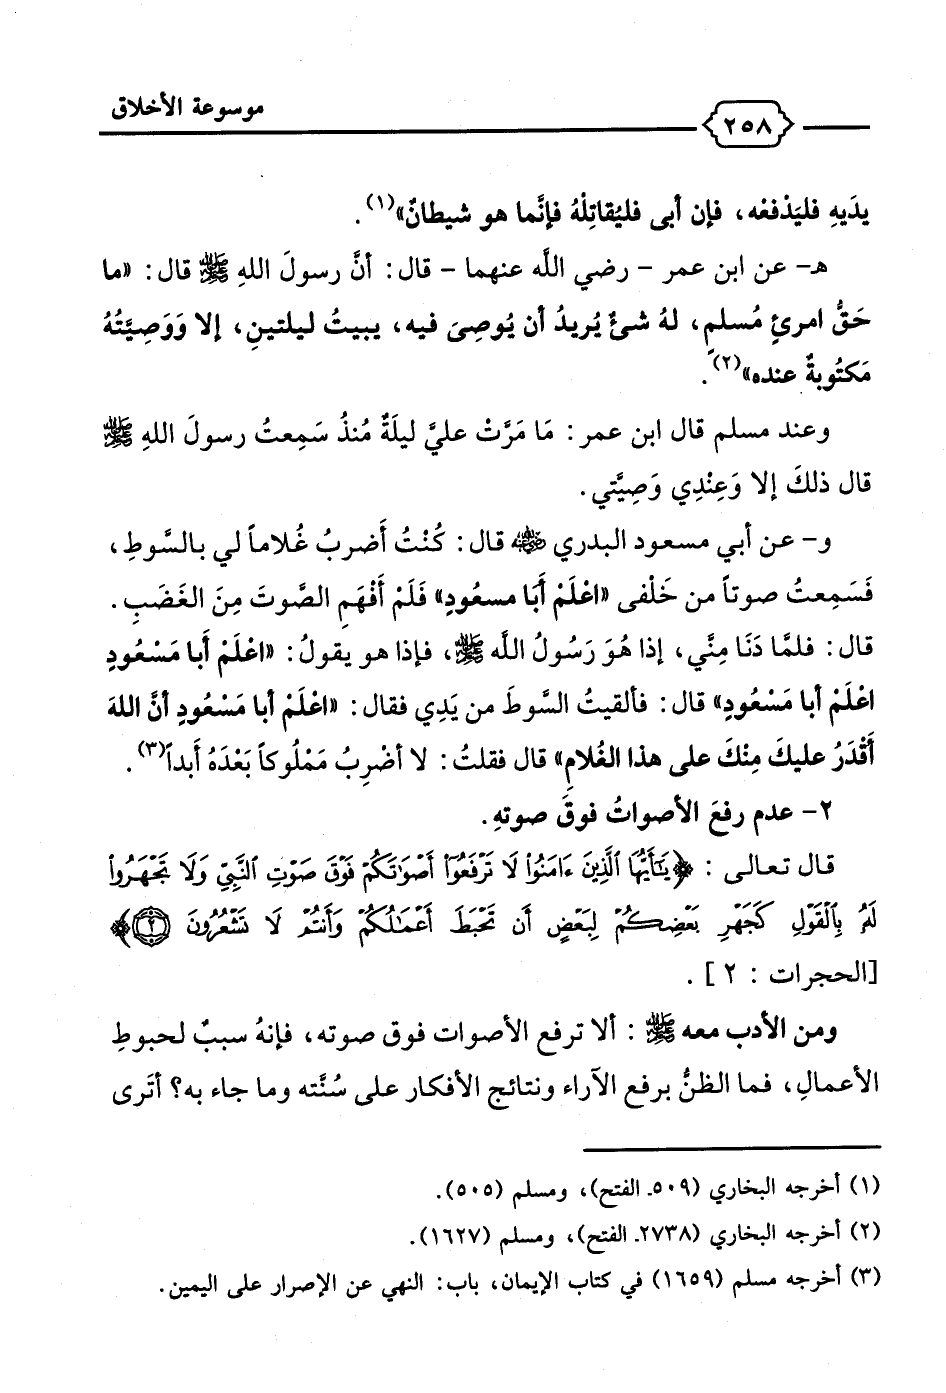 موسوعة الأخلاق
٢٥٨
يدَيهِ فليَدْفعْه، فإن أبى فليُقاتِلْهُ فإنَّما هو شيطانٌ»(١).
هـ- عن ابن عمر - رضي اللَّه عنهما - قال: أنَّ رسولَ اللهِ ﷺ قال: «ما
حَقُّ امرئٍ مُسلمٍ، لهُ شئٌ يُريدُ أن يُوصِىَ فيه، يبيتُ ليلتينِ، إلا وَوَصِيَّتُهُ
مَكتُوبةٌ عنده»(٢).
وعند مسلم قال ابن عمر: مَا مَرَّتْ عليَّ ليلَةٌ مُنذُ سَمِعتُ رسولَ اللهِ ﷺ
قال ذلكَ إلا وَعِنْدِي وَصِيَّتي.
و- عن أبي مسعود البدري رضي الله عنه قال: كُنْتُ أَضرِبُ غُلاماً لي بالسَّوطِ،
فَسَمِعتُ صوتاً من خَلْفى «اعْلَمْ أَبَا مسعُودٍ» فَلَمْ أَفْهَمِ الصَّوتَ مِنَ الغَضَبِ.
قال: فلمَّا دَنَا مِنَّي، إذا هُوَ رَسُولُ اللَّه ﷺ، فإذا هو يقولُ: «اعْلَمْ أَبا مَسْعُودٍ
اعْلَمْ أبا مَسْعُودٍ» قال: فألقيتُ السَّوطَ من يَدِي فقال: «اعْلَمْ أبا مَسْعُودٍ أنَّ اللهَ
أَقْدَرُ عليكَ مِنْكَ على هذا الغُلامِ» قال فقلتُ: لا أضْرِبُ مَمْلُوكاً بَعْدَهُ أَبداً(٣).
٢- عدم رفعَ الأصواتُ فوقَ صوتهِ.
قال تعالى: ﴿يَٰٓأَيُّهَا ٱلَّذِينَ ءَامَنُوا۟ لَا تَرْفَعُوٓا۟ أَصْوَٰتَكُمْ فَوْقَ صَوْتِ ٱلنَّبِيِّ وَلَا تَجْهَرُوا۟
لَهُۥ بِٱلْقَوْلِ كَجَهْرِ بَعْضِكُمْ لِبَعْضٍ أَن تَحْبَطَ أَعْمَٰلُكُمْ وَأَنتُمْ لَا تَشْعُرُونَ ۝٢﴾
[الحجرات: ٢].
ومن الأدب معه ﷺ: ألا ترفع الأصوات فوق صوته، فإنهُ سببٌ لحبوطِ
الأعمالِ، فما الظنُّ برفع الآراء ونتائج الأفكار على سُنَّته وما جاء به؟ أتَرى
(١) أخرجه البخاري (٥٠٩ـ الفتح)، ومسلم (٥٠٥).
(٢) أخرجه البخاري (٢٧٣٨ـ الفتح)، ومسلم (١٦٢٧).
(٣) أخرجه مسلم (١٦٥٩) في كتاب الإيمان، باب: النهي عن الإصرار على اليمين.